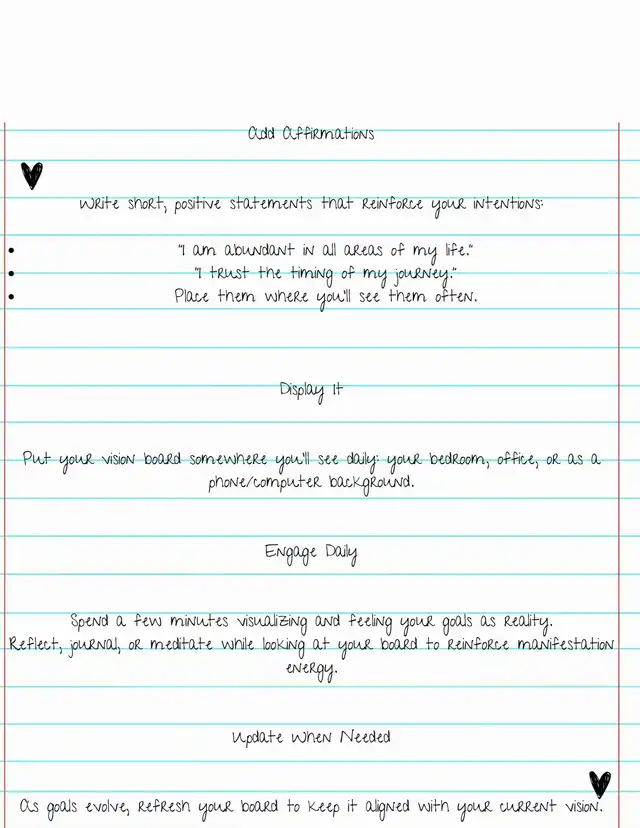 Add Affirmations
Write short, positive statements that reinforce your intentions:
• "I am abundant in all areas of my life."
• "I trust the timing of my journey."
• Place them where you'll see them often.
Display It
Put your vision board somewhere you'll see daily: your bedroom, office, or as a
phone/computer background.
Engage Daily
Spend a few minutes visualizing and feeling your goals as reality.
Reflect, journal, or meditate while looking at your board to reinforce manifestation
energy.
Update When Needed
As goals evolve, refresh your board to keep it aligned with your current vision.